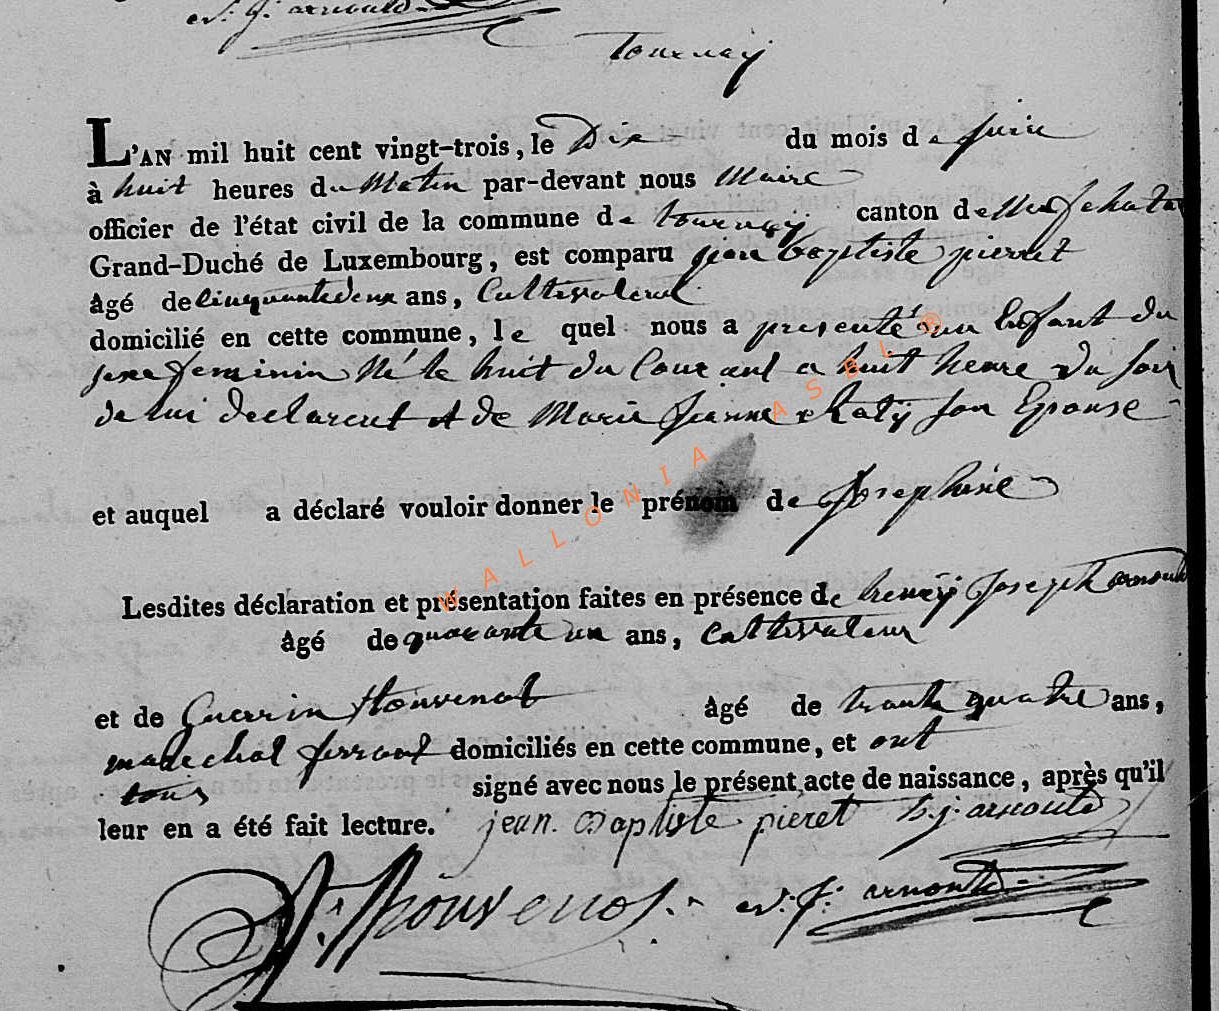 Tournay
L'AN mil huit cent vingt-trois, le Dix du mois de juin
à huit heures du Matin par-devant nous Maire
officier de l'état civil de la commune de tournay canton de Neufchatau
Grand-Duché de Luxembourg, est comparu jean baptiste pierret
âgé de cinquantedeux ans, Cultivateur
domicilié en cette commune, le quel nous a presenté un Enfant du
sexe feminin Né le huit du Courant a huit heure du soir
de lui declarent et de Marie Jeanne son Epouse
et auquel a déclaré vouloir donner le prénom de Josephine
Lesdites déclaration et présentation faites en présence de henry Joseph arnould
âgé de quarante un ans, Cultivateur
et de Guerrin thouvenot âgé de trante quatre ans,
marechal ferrant domiciliés en cette commune, et ont
tous signé avec nous le présent acte de naissance, après qu'il
leur en a été fait lecture. jean Baptiste pieret h. j. arnould
thouvenot j. arnould
WALLONIA ASBL ®